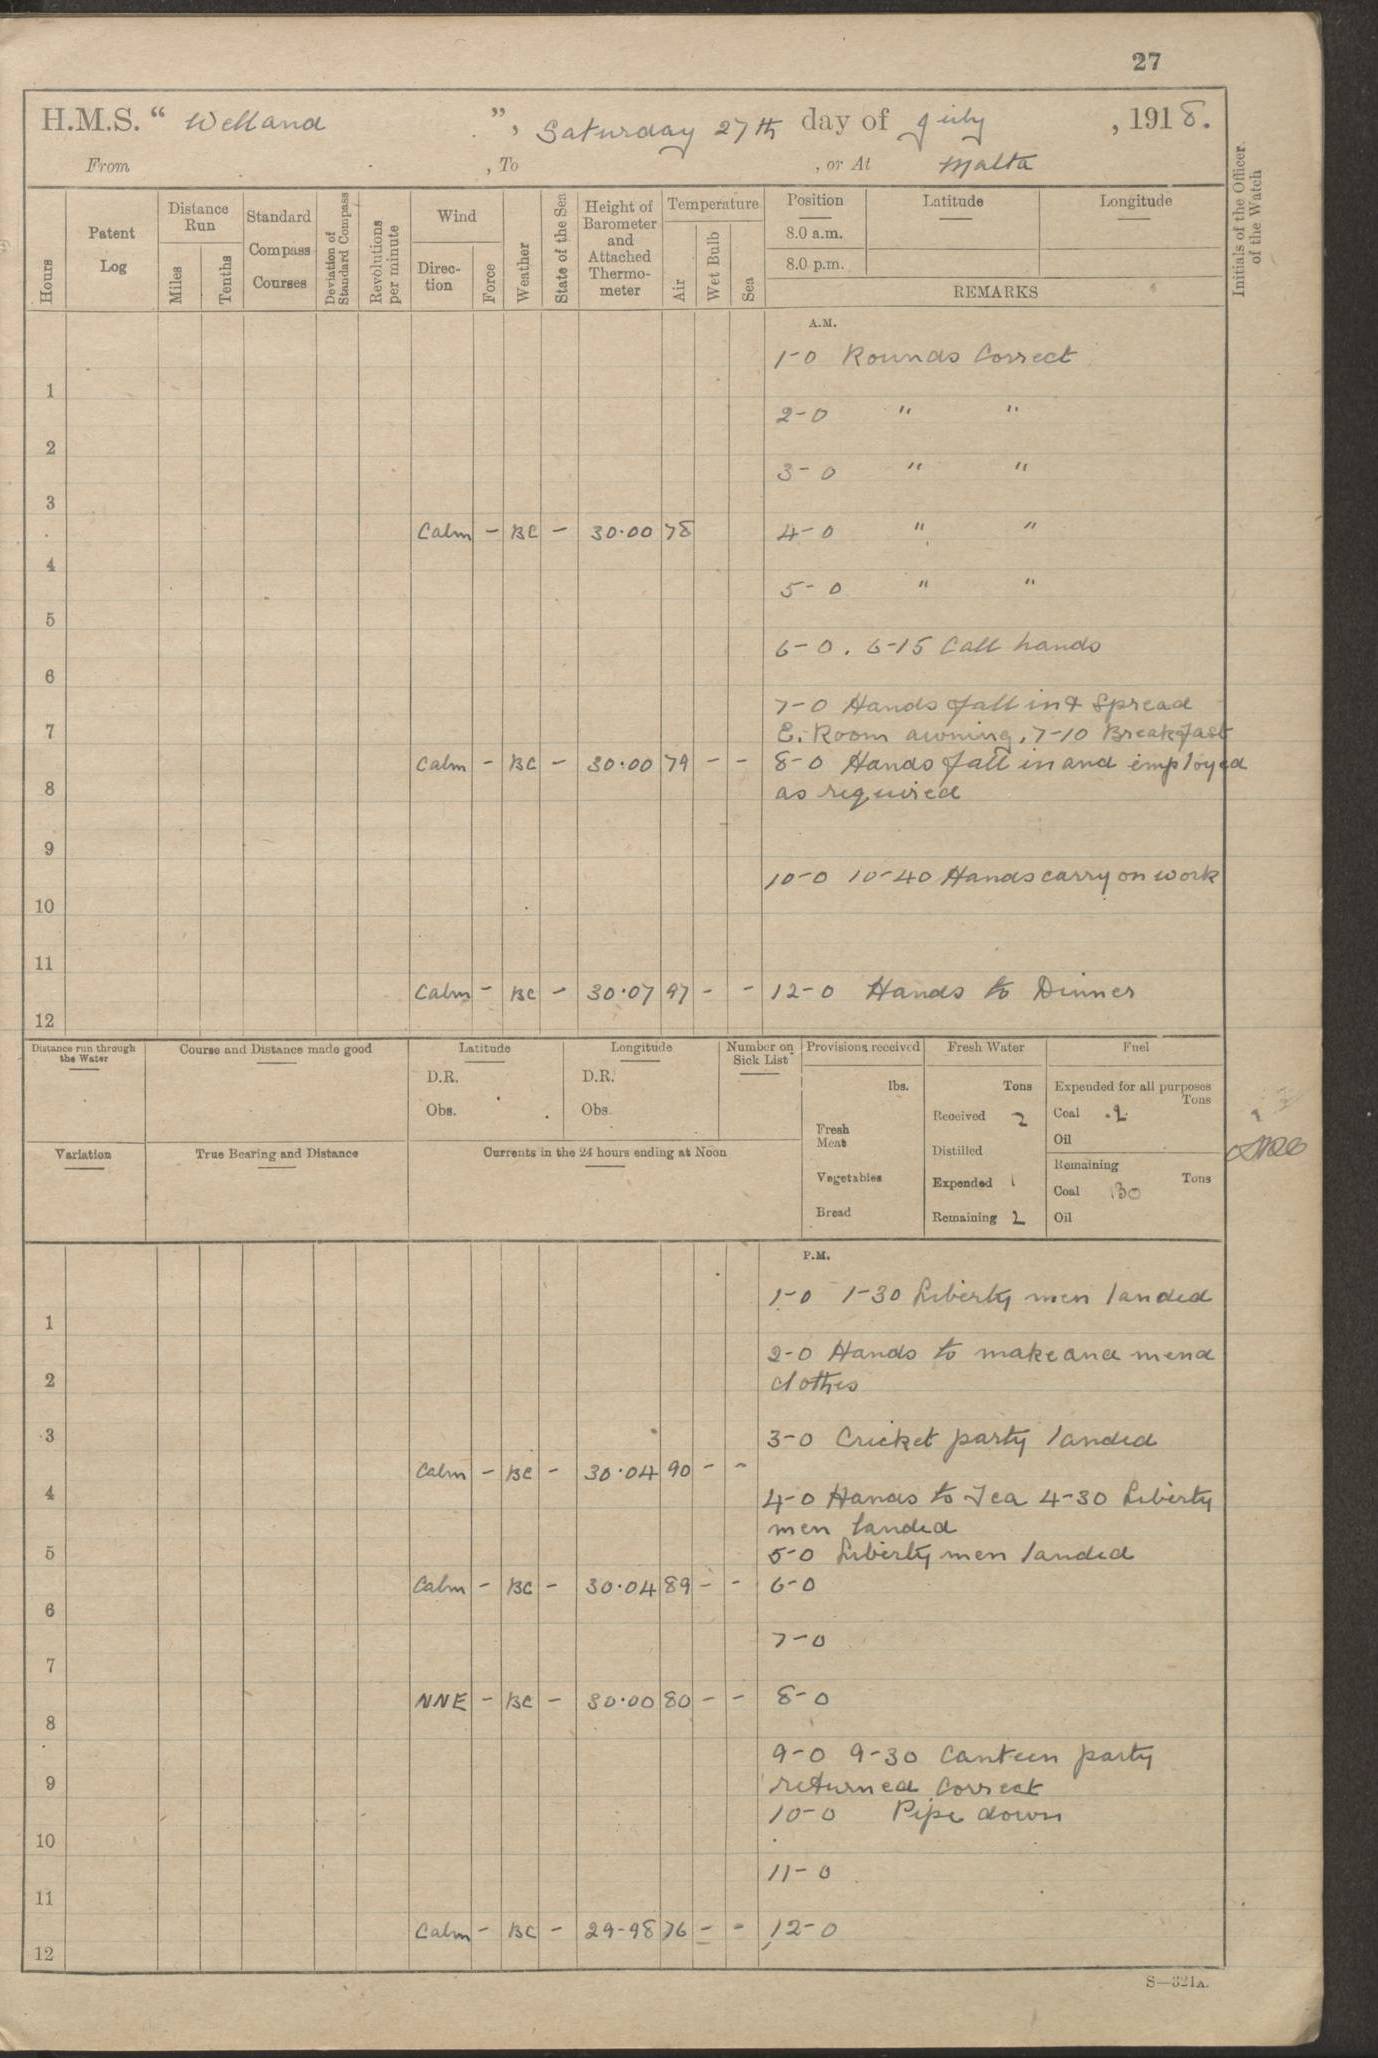 27
H.M.S. " Welland ", Saturday 27th day of July, 1918.
From , To , or At Malta
Hours
Patent Log
Distance Run
Miles
Tenths
Standard Compass Courses
Deviation of Standard Compass
Revolutions per minute
Wind
Direction
Force
Weather
State of the Sea
Height of Barometer and Attached Thermometer
Temperature
Air
Wet Bulb
Sea
Position Latitude Longitude
8.0 a.m.
8.0 p.m.
REMARKS
Initials of the Officer of the Watch
A.M.
1-0 Rounds Correct
1
2-0 " "
2
3-0 " "
3
Calm - BC - 30.00 78 4-0 " "
4
5-0 " "
5
6-0. 6-15 Call hands
6
7-0 Hands fall in & Spread
7 E. Room awning. 7-10 Breakfast
Calm - BC - 30.00 79 - - 8-0 Hands fall in and employed
8 as required
9
10-0 10-40 Hands carry on work
10
11
Calm - BC - 30.07 97 - - 12-0 Hands to Dinner
12
Distance run through the Water
Course and Distance made good
Latitude
D.R.
Obs.
Longitude
D.R.
Obs.
Number on Sick List
Provisions received
lbs.
Fresh Meat
Vegetables
Bread
Fresh Water
Tons
Received 2
Distilled
Expended 1
Remaining 2
Fuel
Expended for all purposes
Tons
Coal .2
Oil
Remaining
Tons
Coal 130
Oil
Variation
True Bearing and Distance
Currents in the 24 hours ending at Noon
P.M.
1-0 1-30 Liberty men landed
1
2-0 Hands to make and mend
2 clothes
3 3-0 Cricket party landed
Calm - BC - 30.04 90 - -
4 4-0 Hands to Tea 4-30 Liberty
men landed
5 5-0 Liberty men landed
Calm - BC - 30.04 89 - - 6-0
6
7-0
7
NNE - BC - 30.00 80 - - 8-0
8
9-0 9-30 Canteen party
9 returned Correct
10-0 Pipe down
10
11-0
11
Calm - BC - 29-98 76 - - 12-0
12
S—321A.